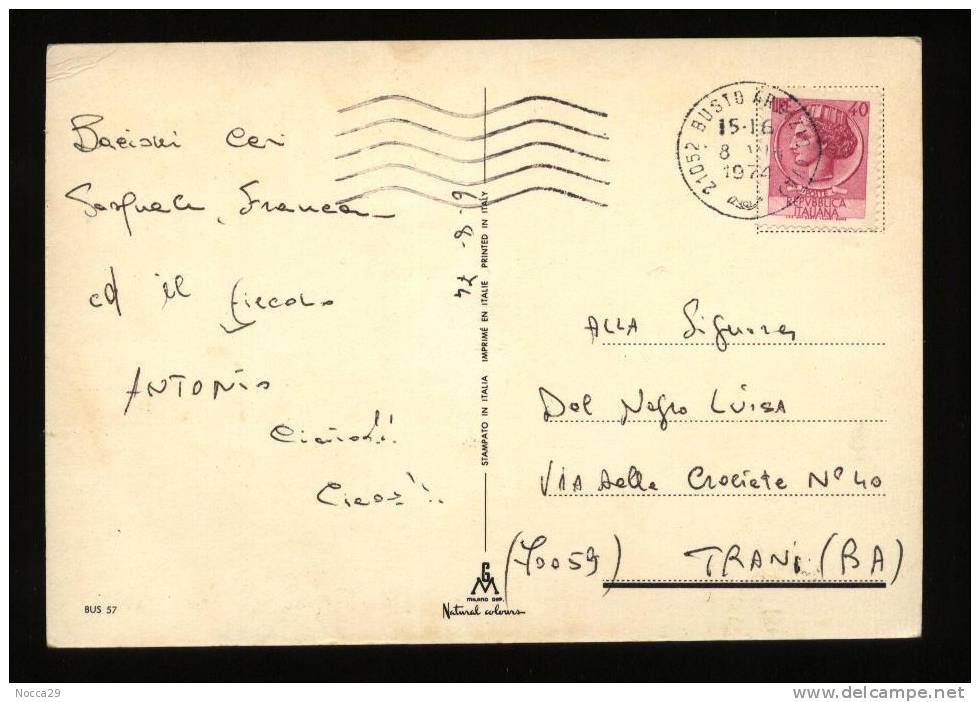 Bacioni Cari
Pasquale, Franca
ed il piccolo
ANTONIO
Ciaoo!!
Ciaoo!!
BUS 57
6-8-74
STAMPATO IN ITALIA IMPRIMÉ EN ITALIE PRINTED IN ITALY
GM
MILANO DEP.
Natural colours
21052 BUSTO
15-16
8
1974
LIRE 40
REPVBBLICA
ITALIANA
ALLA Signora
Del Negro LUISA
VIA delle Crociate N° 40
(70059) TRANI (BA)
Nocca29
www.delcampe.net